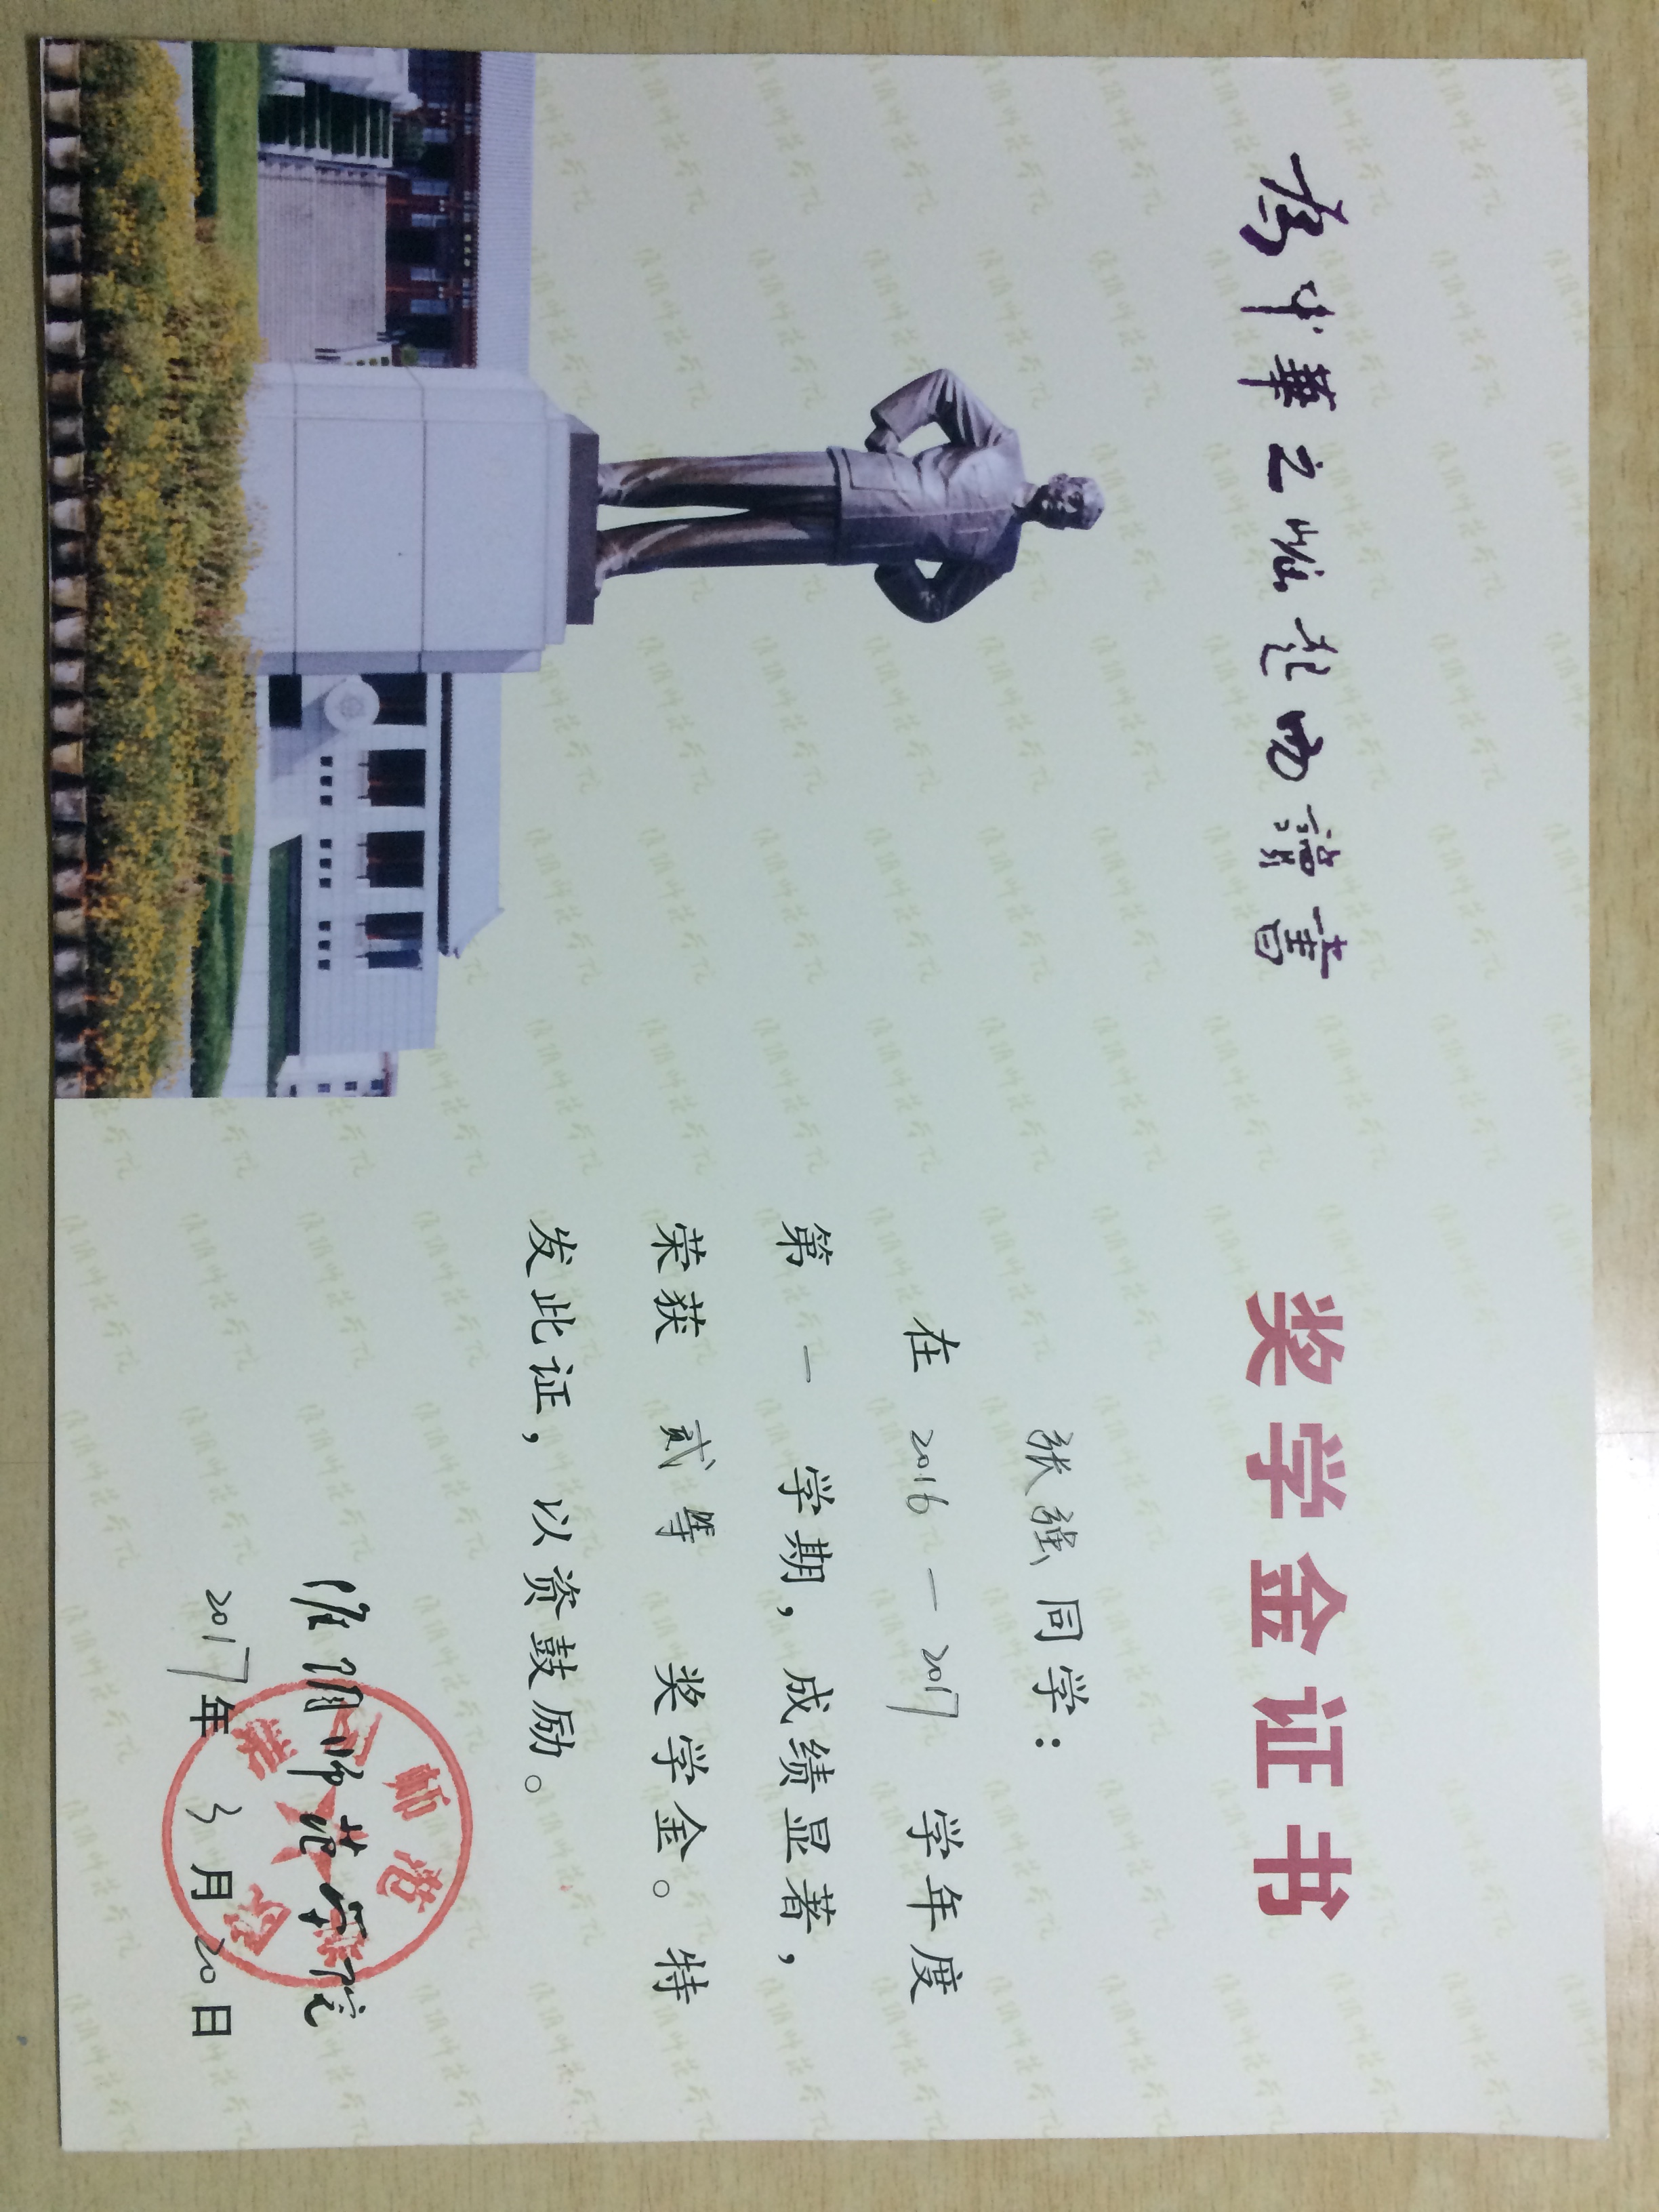 為中華之崛起而讀書
奖学金证书
张强同学：
在 2016 — 2017 学年度
第 一 学期，成绩显著，
荣获 贰等 奖学金。特
发此证，以资鼓励。
淮阴师范学院
淮阴师范学院
2017年 3月20日